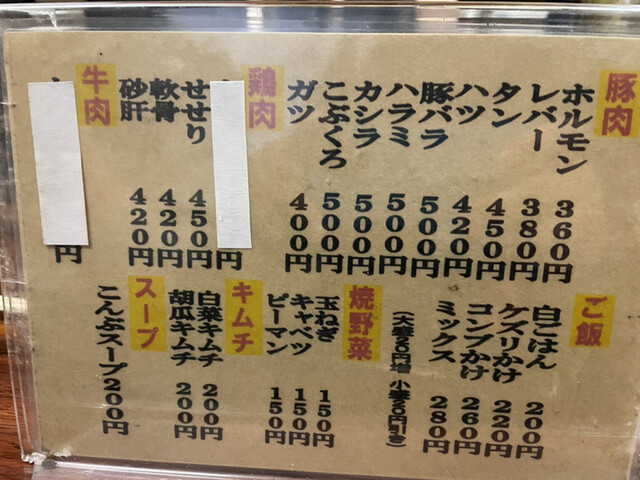 豚肉
ホルモン 360円
レバー 380円
タン 450円
ハツ 420円
豚バラ 500円
ハラミ 500円
カシラ 500円
こぶくろ 500円
ガツ 400円
鶏肉
円
せせり 450円
軟骨 420円
砂肝 420円
牛肉
円
ご飯
白ごはん 200円
ケズリかけ 220円
コンブかけ 260円
ミックス 280円
(大盛20円増 小盛20円引き)
焼野菜
玉ねぎ 150円
キャベツ 150円
ピーマン 150円
キムチ
白菜キムチ 200円
胡瓜キムチ 200円
スープ
こんぶスープ 200円